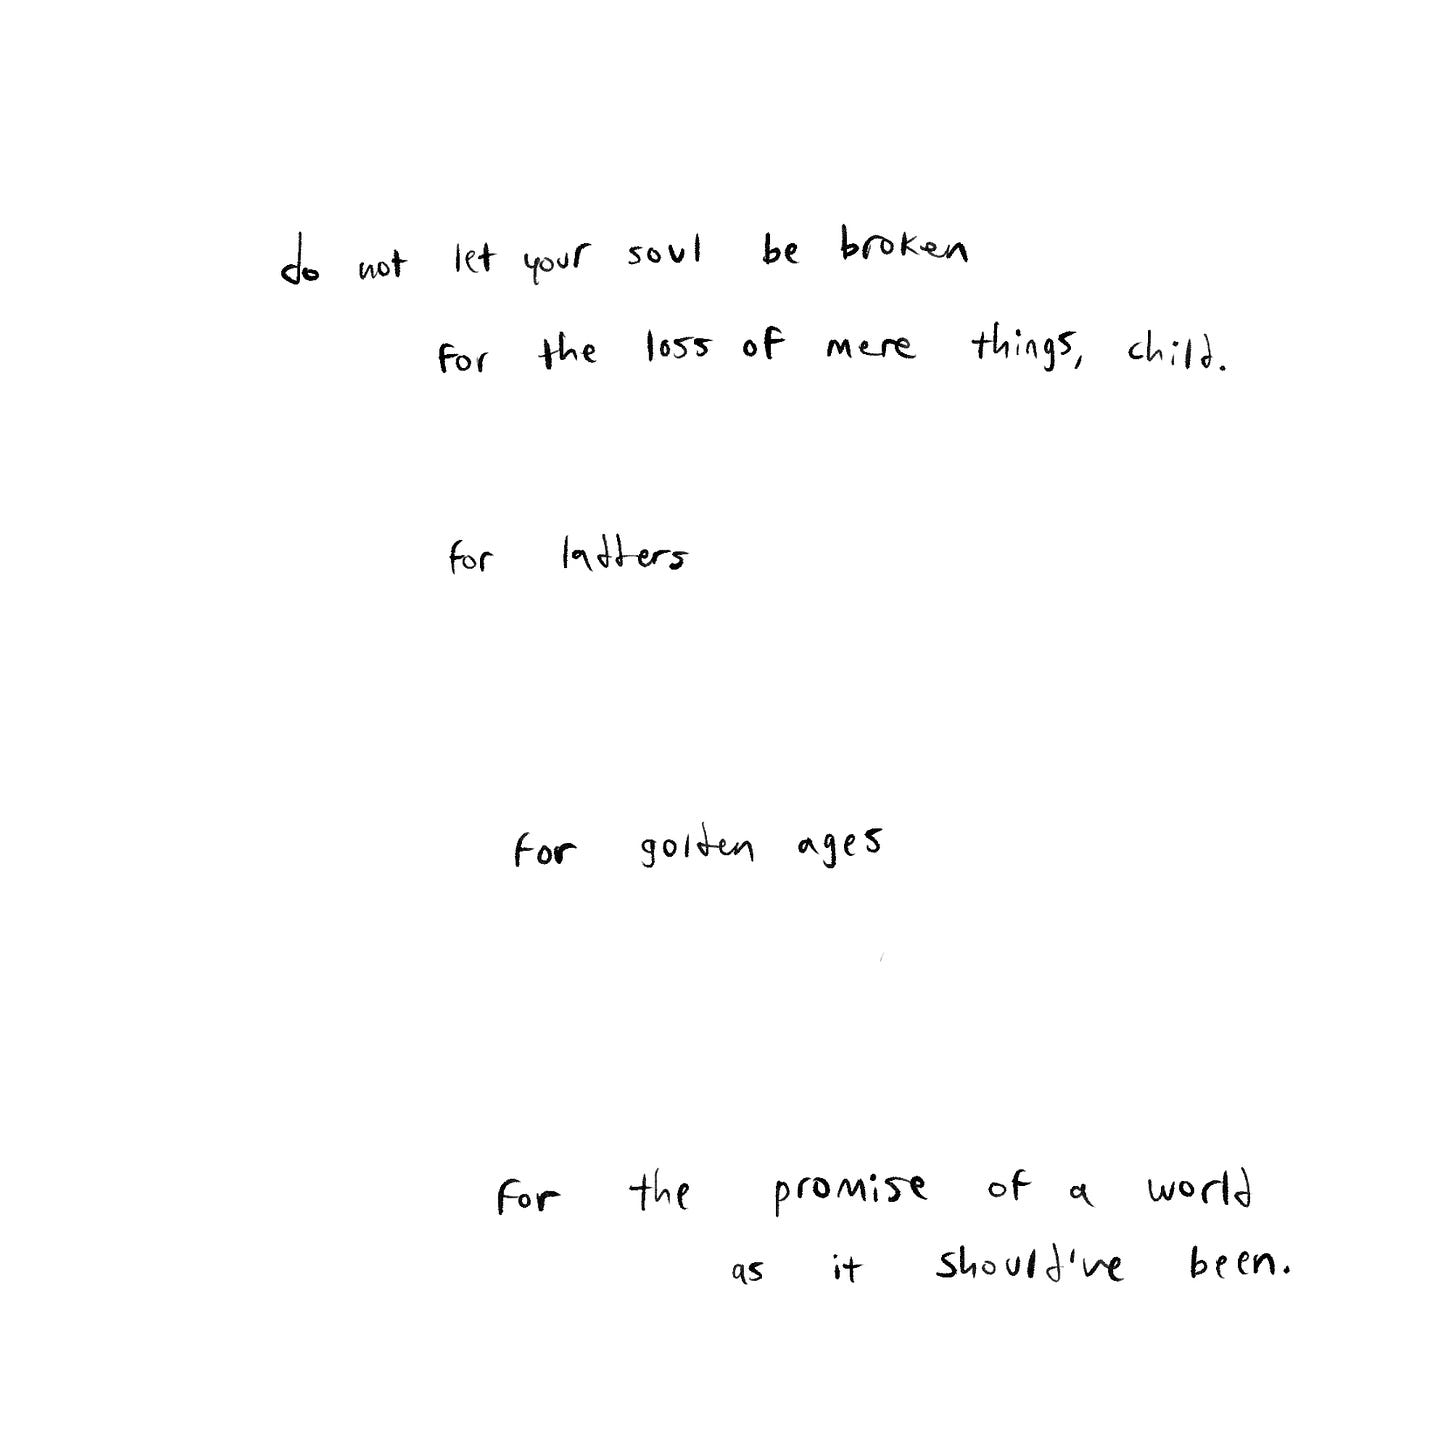 do not let your soul be broken
for the loss of mere things, child.
for ladders
for golden ages
for the promise of a world
as it should've been.